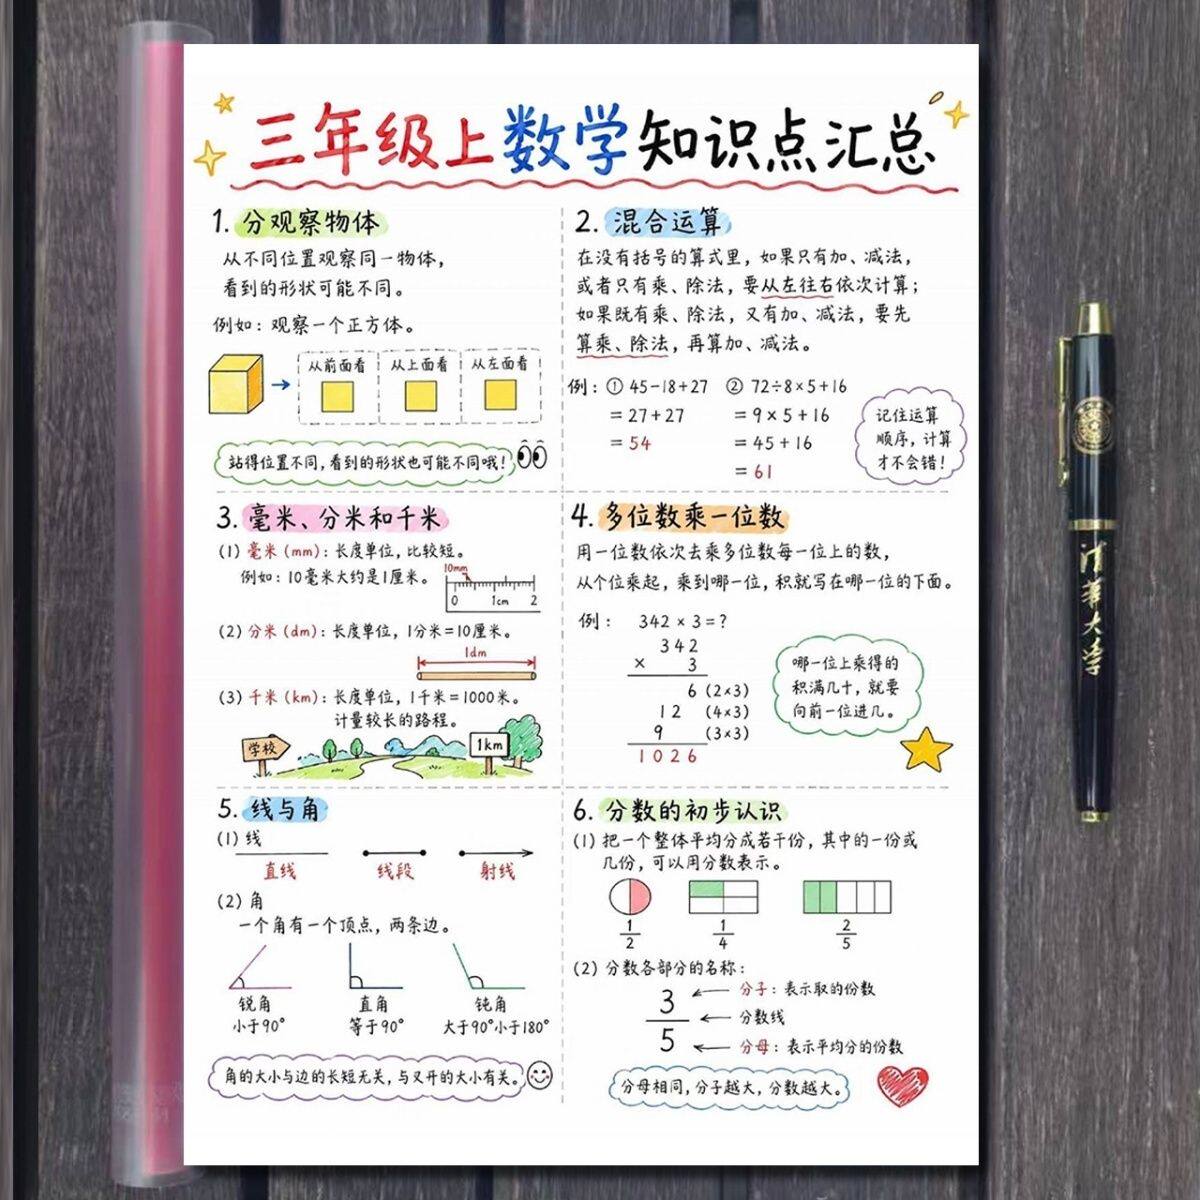 三年级上数学知识点汇总
1. 分观察物体
从不同位置观察同一物体，
看到的形状可能不同。
例如：观察一个正方体。
从前面看 从上面看 从左面看
站得位置不同，看到的形状也可能不同哦！
2. 混合运算
在没有括号的算式里，如果只有加、减法，
或者只有乘、除法，要从左往右依次计算；
如果既有乘、除法，又有加、减法，要先
算乘、除法，再算加、减法。
例：① 45-18+27 ② 72÷8×5+16
=27+27 =9×5+16
=54 =45+16
=61
记住运算
顺序，计算
才不会错！
3. 毫米、分米和千米
(1) 毫米（mm）：长度单位，比较短。
例如：10毫米大约是1厘米。
10mm
0 1cm 2
(2) 分米（dm）：长度单位，1分米=10厘米。
1dm
(3) 千米（km）：长度单位，1千米=1000米。
计量较长的路程。
学校
1km
4. 多位数乘一位数
用一位数依次去乘多位数每一位上的数，
从个位乘起，乘到哪一位，积就写在哪一位的下面。
例： 342×3=?
342
× 3
6 (2×3)
12 (4×3)
9 (3×3)
1026
哪一位上乘得的
积满几十，就要
向前一位进几。
5. 线与角
(1) 线
直线 线段 射线
(2) 角
一个角有一个顶点，两条边。
锐角 直角 钝角
小于90° 等于90° 大于90°小于180°
角的大小与边的长短无关，与叉开的大小有关。
6. 分数的初步认识
(1) 把一个整体平均分成若干份，其中的一份或
几份，可以用分数表示。
1/2 1/4 2/5
(2) 分数各部分的名称：
3 分子：表示取的份数
分数线
5 分母：表示平均分的份数
分母相同，分子越大，分数越大。
清华大学